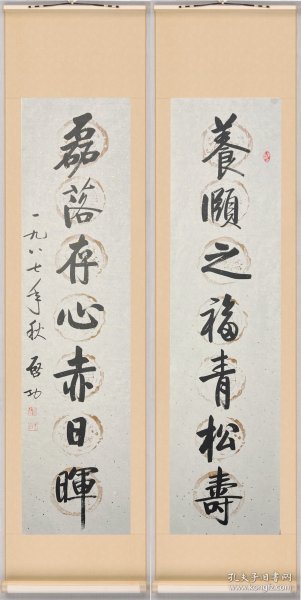 養頤之福青松壽
磊落存心赤日暉
一九八七年秋 啓功
孔夫子旧书网